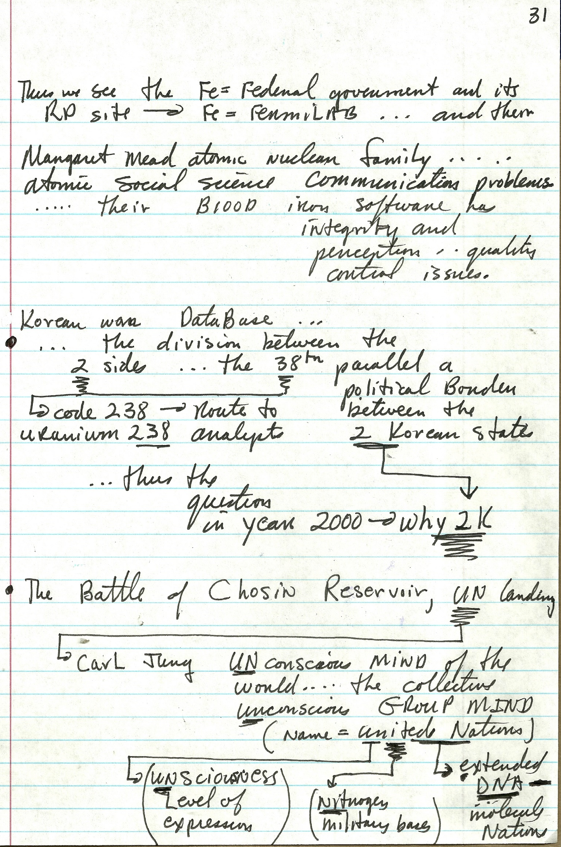 31
Thus we see the Fe = Federal government and its
RD site → Fe = FermiLAB ... and then
Margaret Mead atomic nuclear family .....
atomic social science communication problems
..... their BLOOD iron software has
integrity and
perception .. quality
control issues.
Korean war DataBase ...
... the division between the
2 sides ... the 38th parallel a
political Border
between the
2 Korean states
code 238 → Route to
uranium 238 analysts
... thus the
question
in year 2000 → why 2K
The Battle of Chosin Reservoir, UN landing
Carl Jung UNconscious MIND of the
world .... the collective
unconscious GROUP MIND
(Name = united Nations)
(UNsciousness
Level of
expression)
(Nitrogen
military bases)
extended
DNA -
molecule
Nations